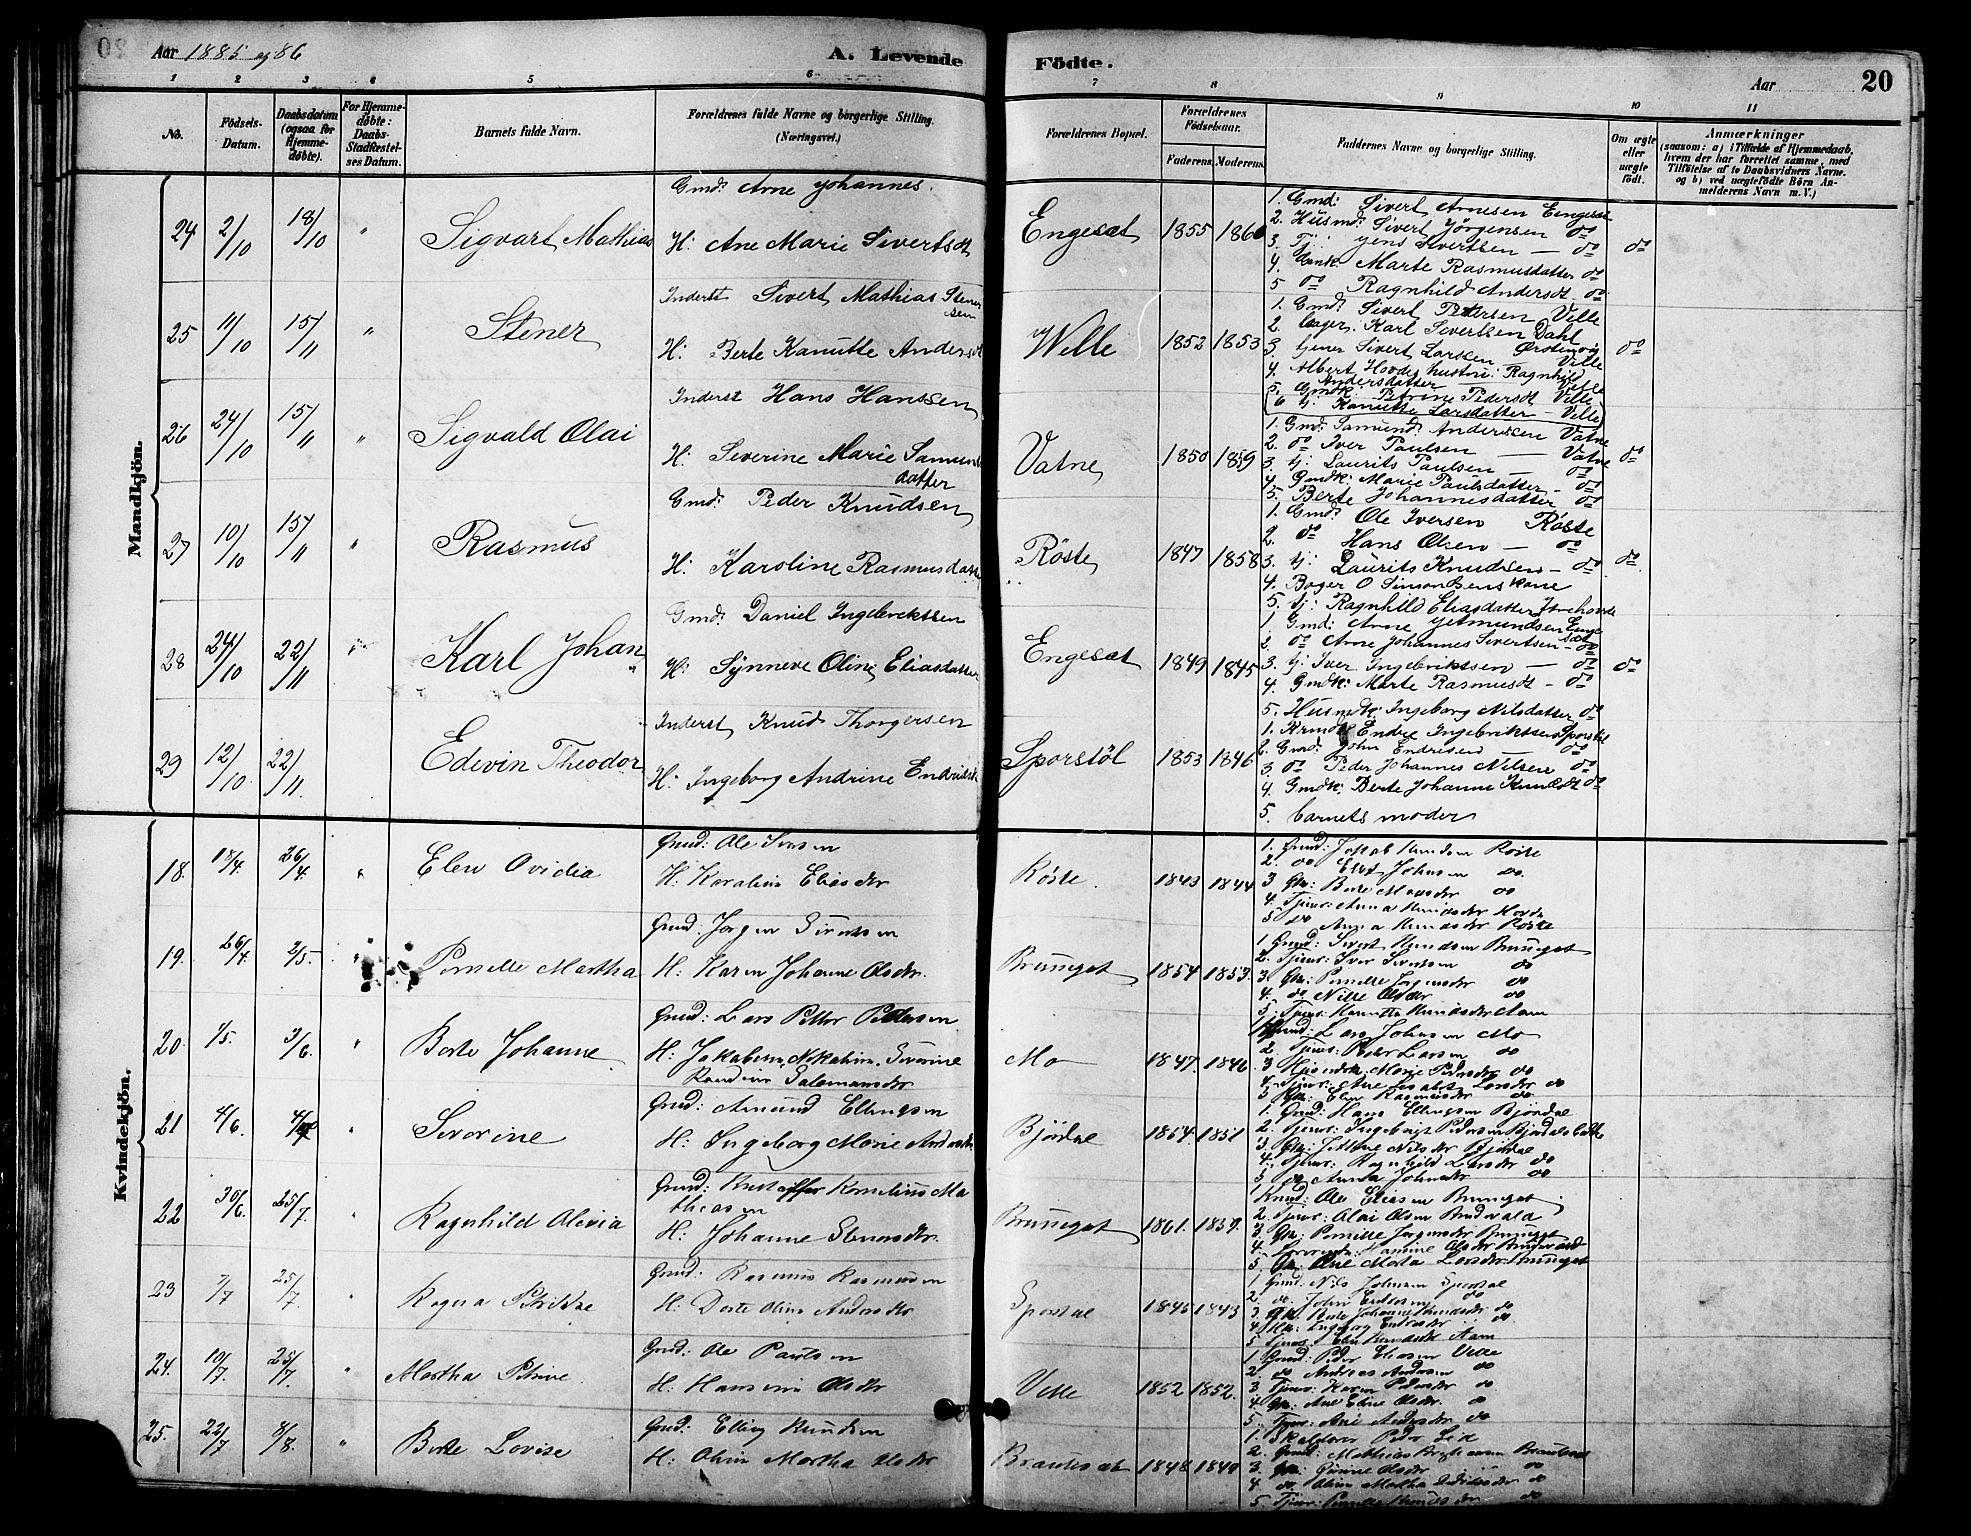 Aar 1885 og 86
A. Levende
Födte.
Aar
20
1 2 3 4 5 6 7 8 9 10 11
No.
Födsels-Datum.
Daabsdatum (ogsaa for Hjemme-döbte).
For Hjemme-döbte: Daabs-Stadfæstel-ses Datum.
Barnets fulde Navn.
Forældrenes fulde Navne og borgerlige Stilling. (Næringsvei.)
Forældrenes Bopæl.
Forældrenes Födselsaar.
Faderens. Moderens.
Faddernes Navne og borgerlige Stilling.
Om ægte eller uægte födt.
Anmærkninger
(saasom: a) i Tilfælde af Hjemmedaab, hvem der har forrettet samme, med Tilföielse af to Daabsvidners Navne. og b) ved uægtefödte Börn An-melderens Navn m.V.)
Mandkjön.
24 2/10 18/10 " Sigvart Mathias
Gmd: Arne Johannes.
H: Ane Marie Sivertsdt
Engesæt 1855 1860
1. Gmd: Sivert Arnesen Engesæt
2. Husmd: Sivert Jörgensen do
3. Tj: Jens Sivertsen — do
4. Enk: Marte Rasmusdatter do
5 do Ragnhild Andersdt do
do
25 11/10 15/11 " Stener
Inderst Sivert Mathias Stener
sen
H: Berte Kanutte Andersdt
Welle 1852 1853
1. Gmd: Sivert Petersen Velle
2. Karl Sivertsen Dahl
3. tjener Sivert Larsen Örstenvig
4. Albert Hovdes hustru: Ragnhild Velle
Andersdatter — Velle
5. Gmdk: Petrine Pedersdt Velle
6 tj. Kanutte Larsdatter — Velle
do
26 24/10 15/11 " Sigvald Olai
Inderst Hans Hanssen
H: Severine Marie Samunds
datter
Vatne 1850 1859
1. Gmd: Samund Anderssen Vatne
2. do Iver Paulsen — Vatne
3. tj: Laurits Paulsen — do
4. Gmdk: Marie Paulsdatter — do
5. Berte Johannesdatter — do
do
27 10/10 15/11 " Rasmus
Gmd: Peder Knudsen
H: Karoline Rasmusdatter
Röste 1847 1858
1. Gmd: Ole Iversen Röste
2. do Hans Olsen — do
3. tj: Laurits Knudsen — do
4. Bager O Simonsens kone
5. tj: Ragnhild Eliasdatter
do
28 24/10 22/11 " Karl Johan
Gmd: Daniel Ingebrektsen
H: Synneve Oline Eliasdatter
Engesæt 1849 1845
1. Gmd: Arne Jetmundsen Enge
sæt
2. do Arne Johannes Sivertsen — do
3. tj: Iver Ingebriktsen — do
4. Gmdk: Marte Rasmusdt — do
5. Husmdk: Ingeborg Nilsdatter do
do
29 12/10 22/11 Edevin Theodor
Inderst Knud Thorgersen
H: Ingeborg Andrine Endresdt
Sporstöl 1853 1846
1. Endre Ingebriktsen Sporstöl
2. Gmd: John Endresen — do
3. do Peder Johannes Nilsen do
4. Gmdk: Berte Johanne Knudsdt do
5. barnets moder
Kvindekjön.
18. 18/4. 26/4. " Elen Ovidia
Gmd: Ole Iversen
H: Karoline Eliasdtr
Röste. 1843 1844
1. Gmd: Jakob Knudsen Röste
2. do Elef Johnsen do.
3 Gk: Berte Monsdtr do
4. Tjener: Anna Knudsdtr Hovde
5 do Anna Knudsdtr Röste
19. 26/4. 2/5. " Pernille Martha
Gmd: Jørgen Sivertsen
H: Karen Johanne Olsdtr.
Bruneset 1854 1853.
1 Gmd: Sivert Knudsen Bruneset
2. Tjener: Iver Sivertsen do
3. Gk: Pernille Jørgensdtr do
4. do Nille Olsdtr do
5. Tjener: Kanutte Knudsdtr Aam
20. 1/5. 3/6. " Berte Johanne
Gmd: Lars Petter Pedersen.
H: Jakobine Nikoline Severine
Salamonsdtr
Mo 1847. 1846.
1 Gmd: Lars Johnsen Mo
2 Tjener: Peder Larsen do
3 Marie Pedersdtr do
4. Tjener: Ane Larsdtr do
5 Gk: Elen Rasmusdtr do
21 4/6. " Severine
Gmd: Amund Ellingsen
H: Ingeborg Marie Andersdtr
Bjørdal 1854. 1851
1. Gmd: Hans Ellingsen Bjørdal
2. Tjener: Ingebrigt Pedersen
3. Gk: Nilsdtr Bjørdal
4. Tjener: Ragnhild Larsdtr do
5 do Anna Johnsdtr do
22 30/6. 25/7. " Ragnhild Olevia
Gmd: Kristoffer Kornelius Ma
thiasen
H: Johanne Stenersdtr.
Bruneset 1861. 1857.
1 Gmd: Ole Eliasen Bruneset
2. Tjener: Olai Olsen
3. Gk: Pernille Jørgensdtr Bruneset
5. Gk: Ane Marta Larsdtr Bruneset
23 7/7 25/7. " Ragna
Gmd: Rasmus Rasmussen
H: Dorte Oline Andersdtr
1845 1843
1 Gmd: Nils Johnsen
2. do. John Endresen do
3 Gk: Berte Johanne Knudsdtr do
4 Ingeborg Endresdtr do
5 Tjener: Elen Knudsdtr Aam
24. 10/7. 25/7. " Martha Petrine
Gmd: Ole Paulsen
H: Hansine Olsdtr
Velle 1852 1852.
1 Gmd: Peder Eliasen Velle
2. do Andreas Andersen do
3 Tjener: Karen Pedersdtr do
4 Gk: Ane Eline Olsdtr. do
5. Tjener: Ane Andersdtr do
25. 22/7 8/8. " Berte Lovise
Gmd: Elling Knudsen
H: Oline Martha Olsdtr
Brautesæt 1848 1849
1. Skolelærer Peder Lid
2. Gmd: Mathias Brautesæt
3. Gk: Olsdtr do
4 do. Oline Martha do
5. Tjener: Pernille Knudsdtr do